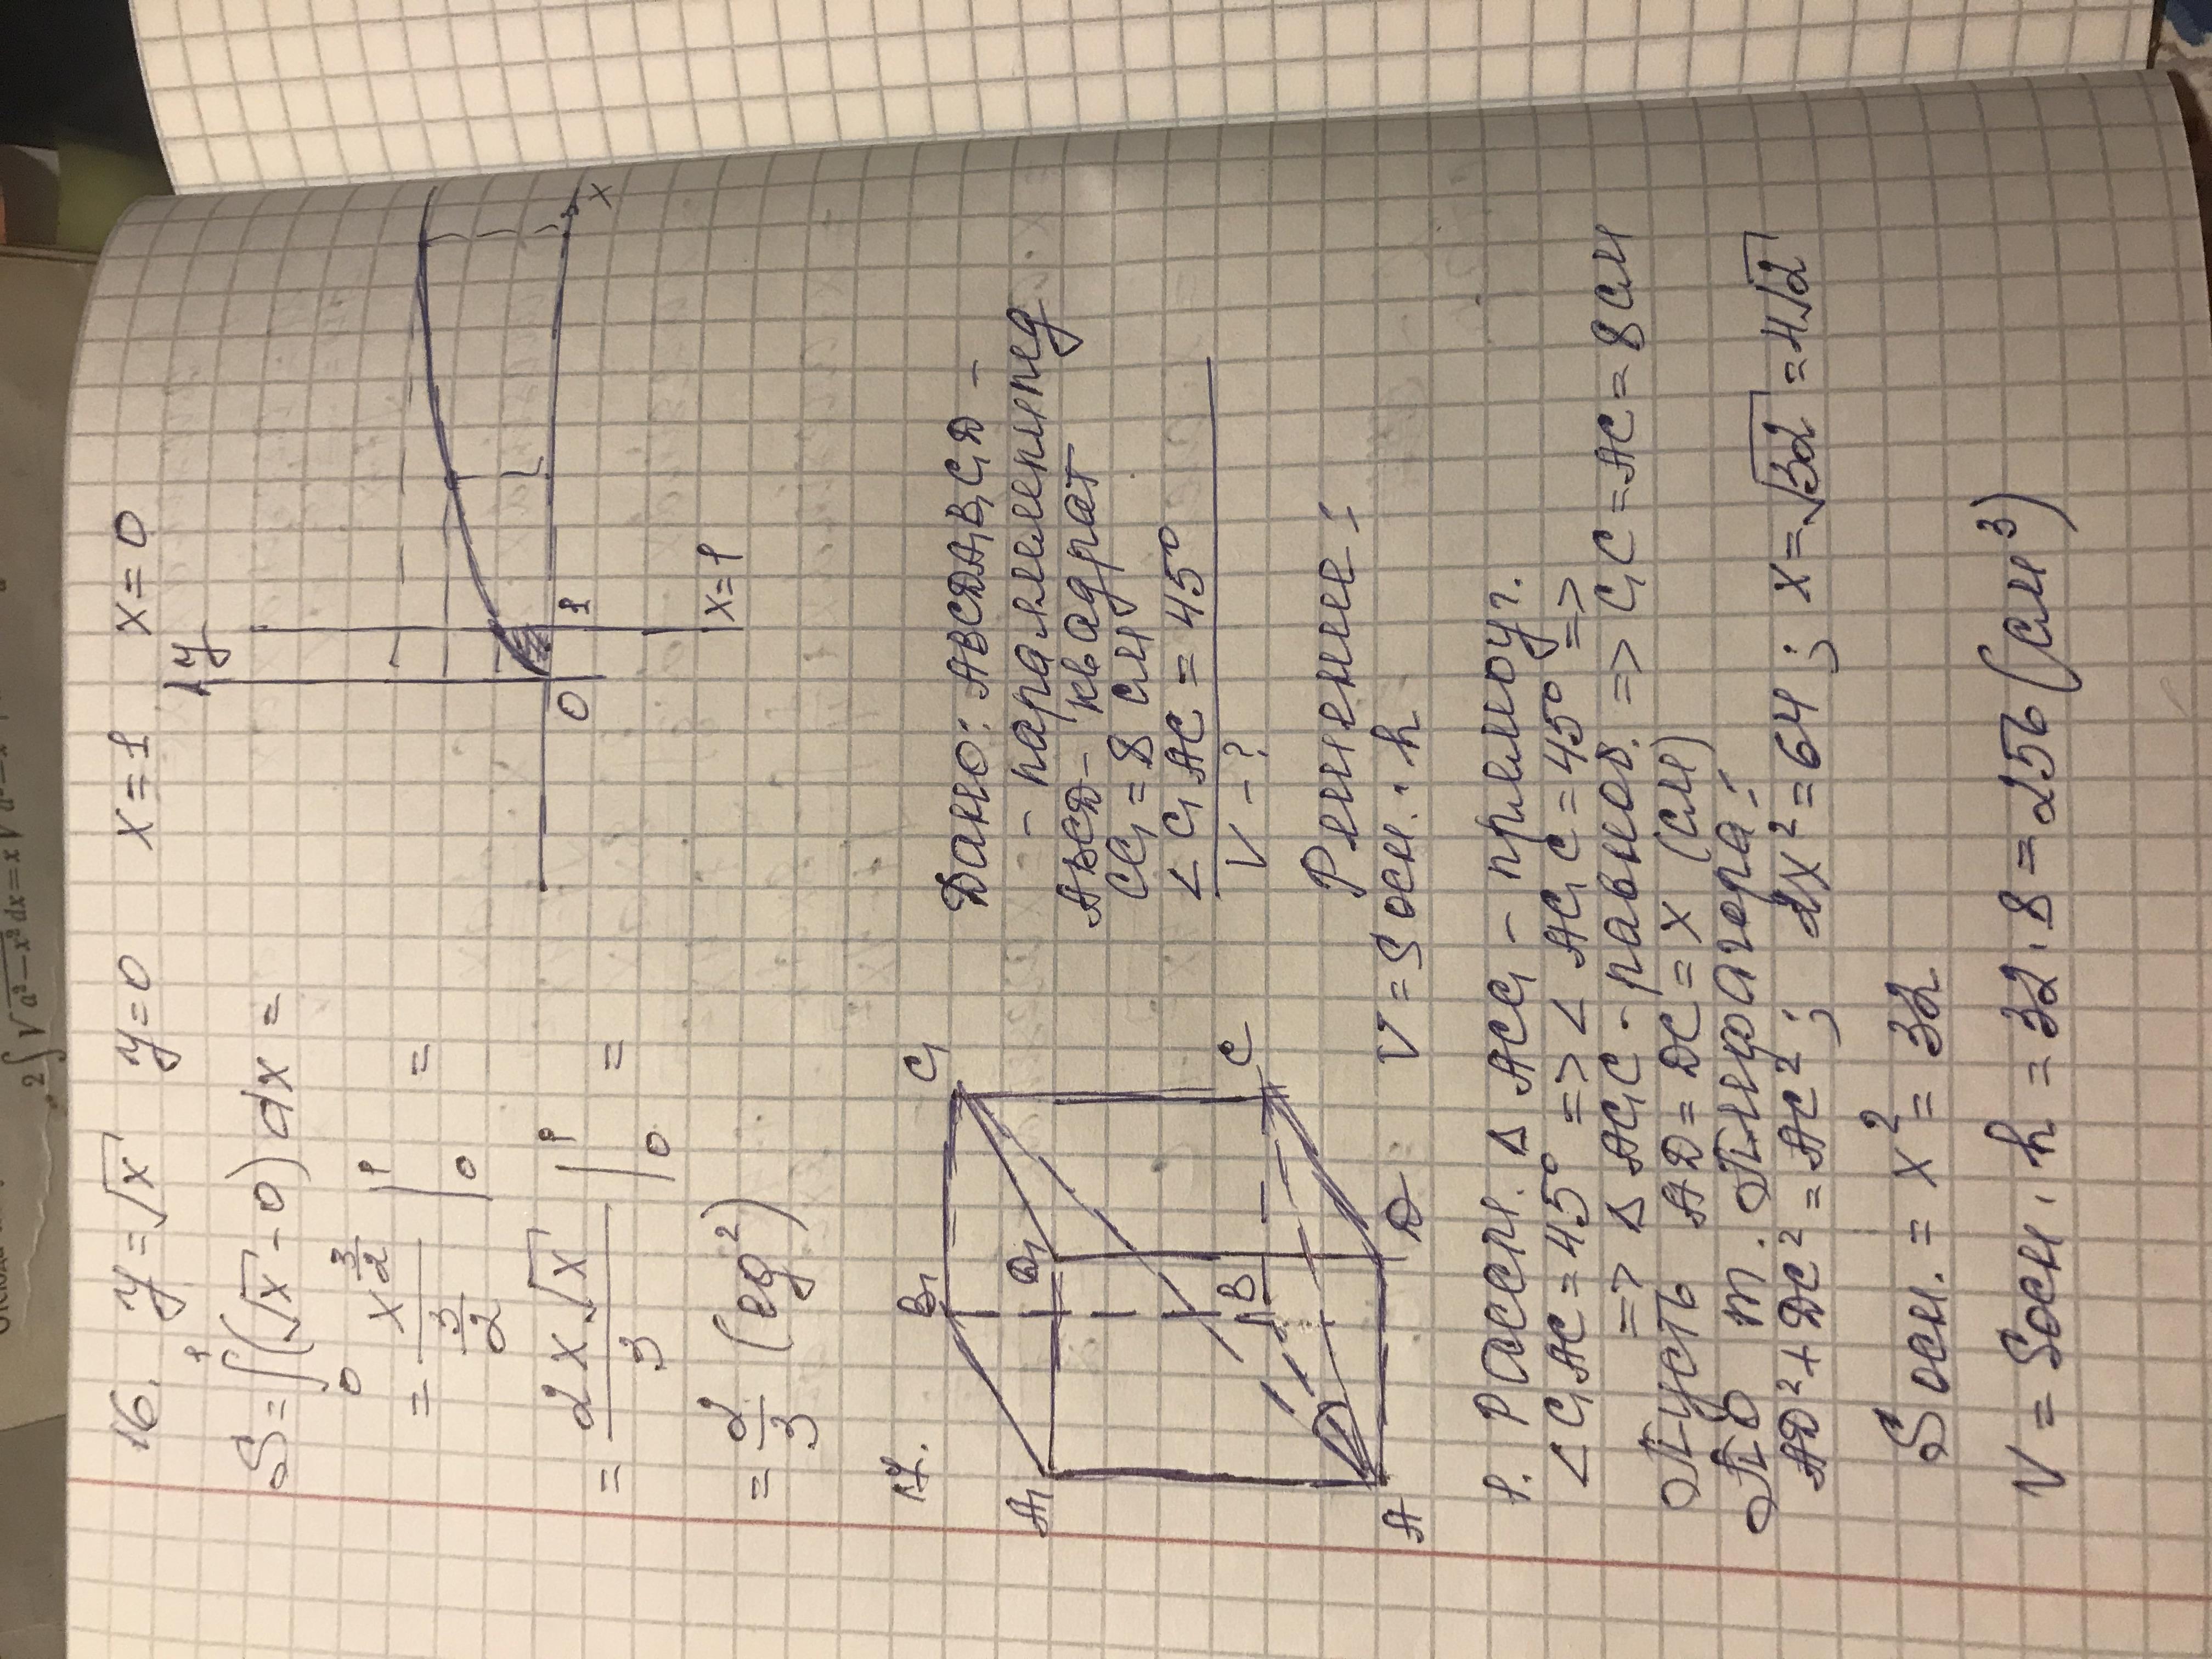 16. y=√x y=0 x=1 x=0
S=∫₀¹(√x-0)dx=
= x^(3/2) / (3/2) |₀¹ =
= 2x√x / 3 |₀¹ =
= 2/3 (ед²)
y
0 1
x
x=1
17.
B₁ C₁
A₁ D₁
B C
A D
Дано: ABCDA₁B₁C₁D -
- параллелепипед
ABCD - квадрат
CC₁ = 8 см
∠C₁AC = 45°
V - ?
Решение:
V = S осн. · h
1. Рассм. Δ ACC₁ - прямоуг.
∠C₁AC = 45° => ∠AC₁C = 45° =>
=> Δ AC₁C - равноб. => C₁C = AC = 8 см
Пусть AD = DC = x (см)
По т. Пифагора:
AD² + DC² = AC²; 2x² = 64; x = √32 = 4√2
S осн. = x² = 32
V = Sосн. · h = 32 · 8 = 256 (см³)
2∫√a²-x² dx = x√a²-x